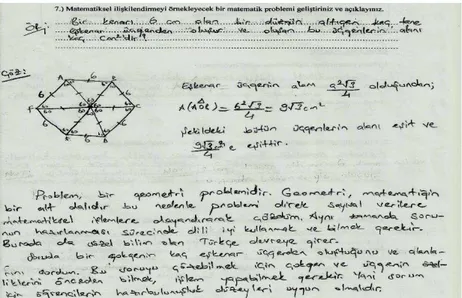 7.) Matematiksel ilişkilendirmeyi örnekleyecek bir matematik problemi geliştiriniz ve açıklayınız.
Bir kenarı 6 cm olan bir düzgün altıgen kaç tane
eşkenar üçgenden oluşur ve oluşan bu üçgenlerin alanı
kaç cm² dir?
Çöz:
Eşkenar üçgenin alanı a²√3/4 olduğundan;
= 6²√3/4 = 9√3 cm²
şekildeki bütün üçgenlerin alanı eşit ve
eşittir.
Problem, bir geometri problemidir. Geometri, matematiğin
bir alt dalıdır bu nedenle problemi direk sayısal verilere
matematiksel işlemlere dayandırarak çözdüm. Aynı zamanda soru-
nun hazırlanması sürecinde dili iyi kullanmak ve bilmek gerekir.
Burada da sözel bilim olan Türkçe devreye girer.
Soruda bir çokgenin kaç eşkenar üçgenden oluştuğunu ve alanla-
rını sordum. Bu soruyu çözebilmek için çokgen ve üçgenin özel-
liklerini önceden bilmek, işlem yapabilmek gerekir. Yani sorum
için öğrencilerin hazırbulunuşluk düzeyleri uygun olmalıdır.